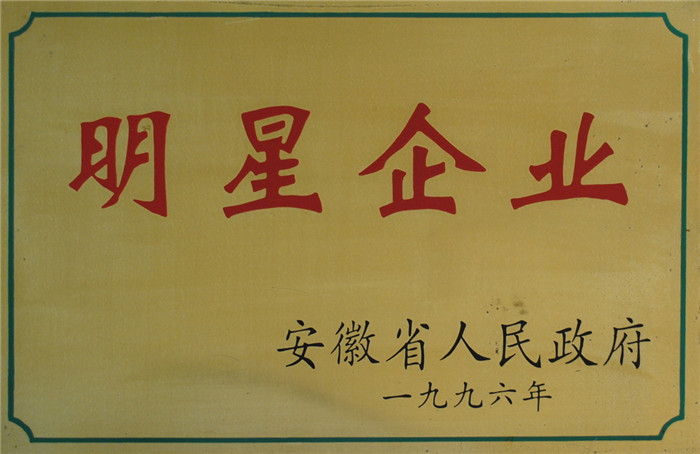 明星企业
安徽省人民政府
一九九六年